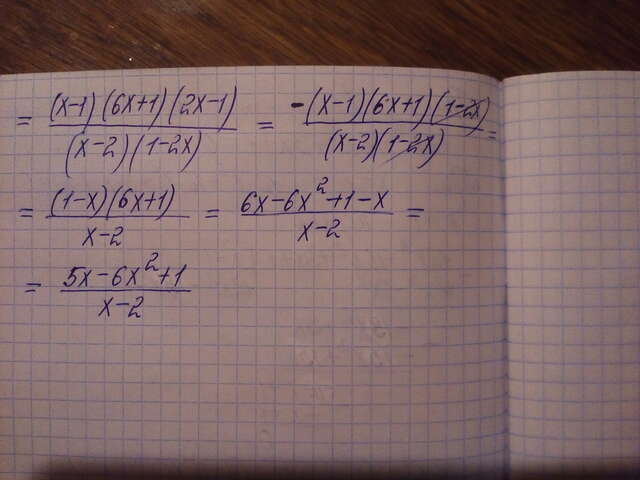 = (x-1)(6x+1)(2x-1) / (x-2)(1-2x) = -(x-1)(6x+1)(1-2x) / (x-2)(1-2x) =
= (1-x)(6x+1) / x-2 = 6x-6x²+1-x / x-2 =
= 5x-6x²+1 / x-2